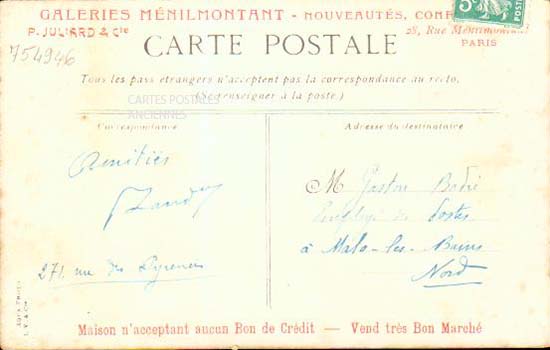 GALERIES MÉNILMONTANT - NOUVEAUTÉS, CONF
P. JULIARD & Cie
28, Rue Ménilmontant
PARIS
754946
CARTE POSTALE
Tous les pays étrangers n'acceptent pas la correspondance au recto.
(Se renseigner à la poste.)
CARTES POSTALES
ANCIENNES
Correspondance
Adresse du destinataire
Amitiés
271 rue des Pyrénées
M Gaston Bodié
Employé de Postes
à Malo-les-Bains
Nord
Maison n'acceptant aucun Bon de Crédit — Vend très Bon Marché